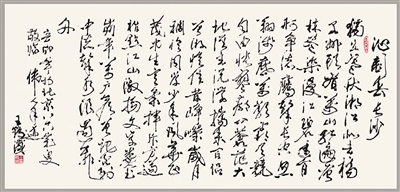 沁园春长沙
独立寒秋湘江北去橘
子洲头看万山红遍层
林尽染漫江碧透百
舸争流鹰击长空鱼
翔浅底万类霜天竞
自由怅寥廓问苍茫大
地谁主沉浮携来百侣
曾游忆往昔峥嵘岁月
稠恰同学少年风华正
茂书生意气挥斥方遒
指点江山激扬文字粪土
当年万户侯曾记否到
中流击水浪遏飞
舟